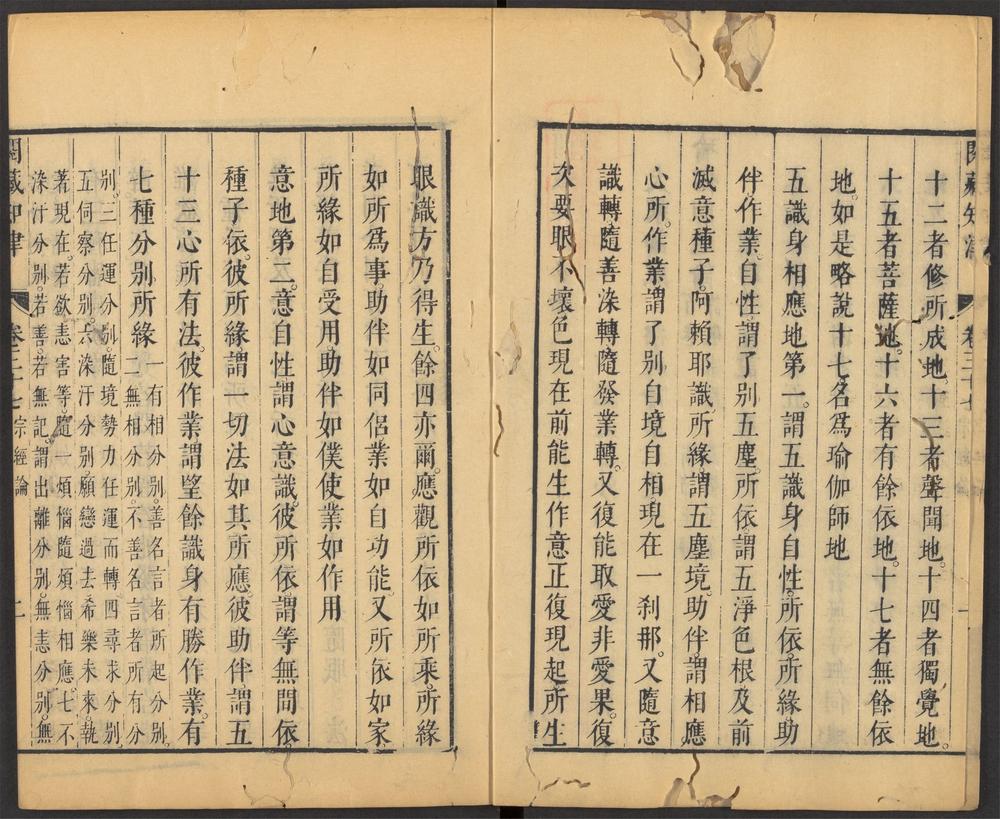 閱藏知津
卷三十七
十二者修所成地。十三者聲聞地。十四者獨覺地。
十五者菩薩地。十六者有餘依地。十七者無餘依
地。如是略說十七名爲瑜伽師地
五識身相應地第一。謂五識身自性。所依。所緣。助
伴。作業。自性謂了別五塵。所依謂五淨色根及前
滅意種子。阿賴耶識。所緣謂五塵境。助伴謂相應
心所。作業謂了別自境自相。現在一刹那。又隨意
識轉。隨善染轉。隨發業轉。又復能取愛非愛果。復
次要眼不壞。色現在前。能生作意正復現起。所生
眼識方乃得生。餘四亦爾。應觀所依如所乘。所緣
如所爲事。助伴如同侶。業如自功能。又所依如家。
所緣如自受用。助伴如僕使。業如作用
意地第二。意自性謂心意識。彼所依謂等無間依。
種子依。彼所緣謂一切法如其所應。彼助伴謂五
十三心所有法。彼作業謂望餘識身有勝作業。有
七種分別所緣
一有相分別。善名言者所起分別。
二無相分別。不善名言者所有分
別。三任運分別。隨境勢力任運而轉。四尋求分別。
五伺察分別。六染汙分別。願戀過去。希樂未來。執
著現在。若欲恚害等。隨一煩惱隨煩惱相應。七不
染汙分別。若善。若無記。謂出離分別。無恚分別。無
閱藏知津
卷三十七
宗經論
二